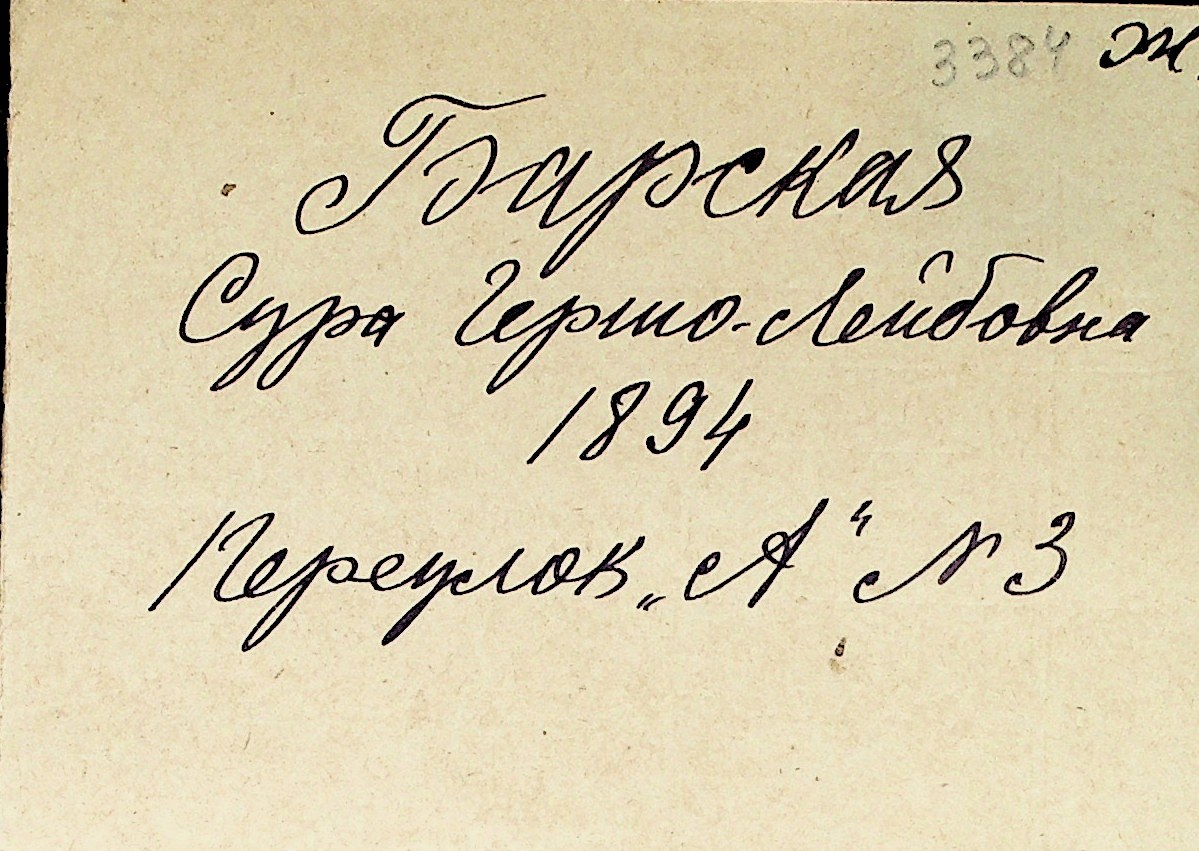 3384 Ж.
Барская
Сура Гершо-Лейбовна
1894
Переулок „А“ № 3